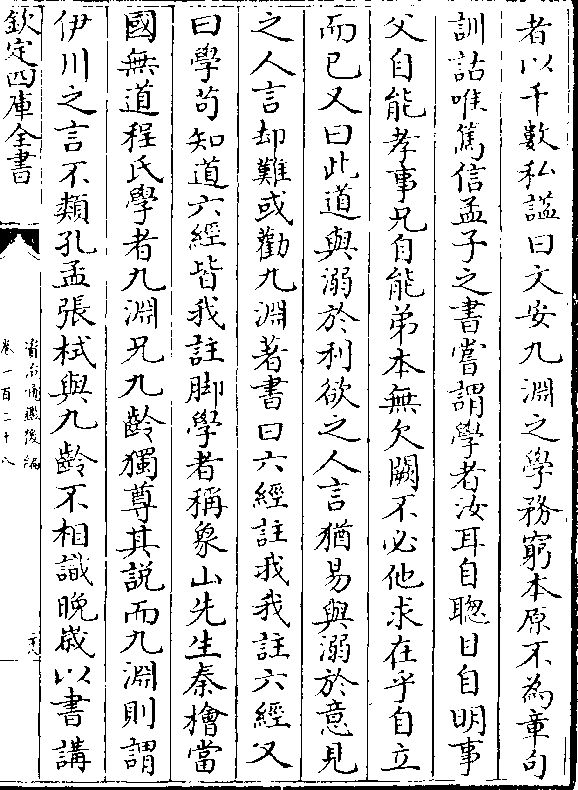 者以千數私諡曰文安九淵之學務窮本原不為章句
訓詁唯篤信孟子之書嘗謂學者汝耳自聰目自明事
父自能孝事兄自能弟本無欠闕不必他求在乎自立
而已又曰此道與溺於利欲之人言猶易與溺於意見
之人言却難或勸九淵著書曰六經註我我註六經又
曰學苟知道六經皆我註脚學者稱象山先生秦檜當
國無道程氏學者九淵兄九齡獨尊其説而九淵則謂
伊川之言不類孔孟張栻與九齡不相識晚嵗以書講
欽定四庫全書
資治通鑑後編
卷一百二十八